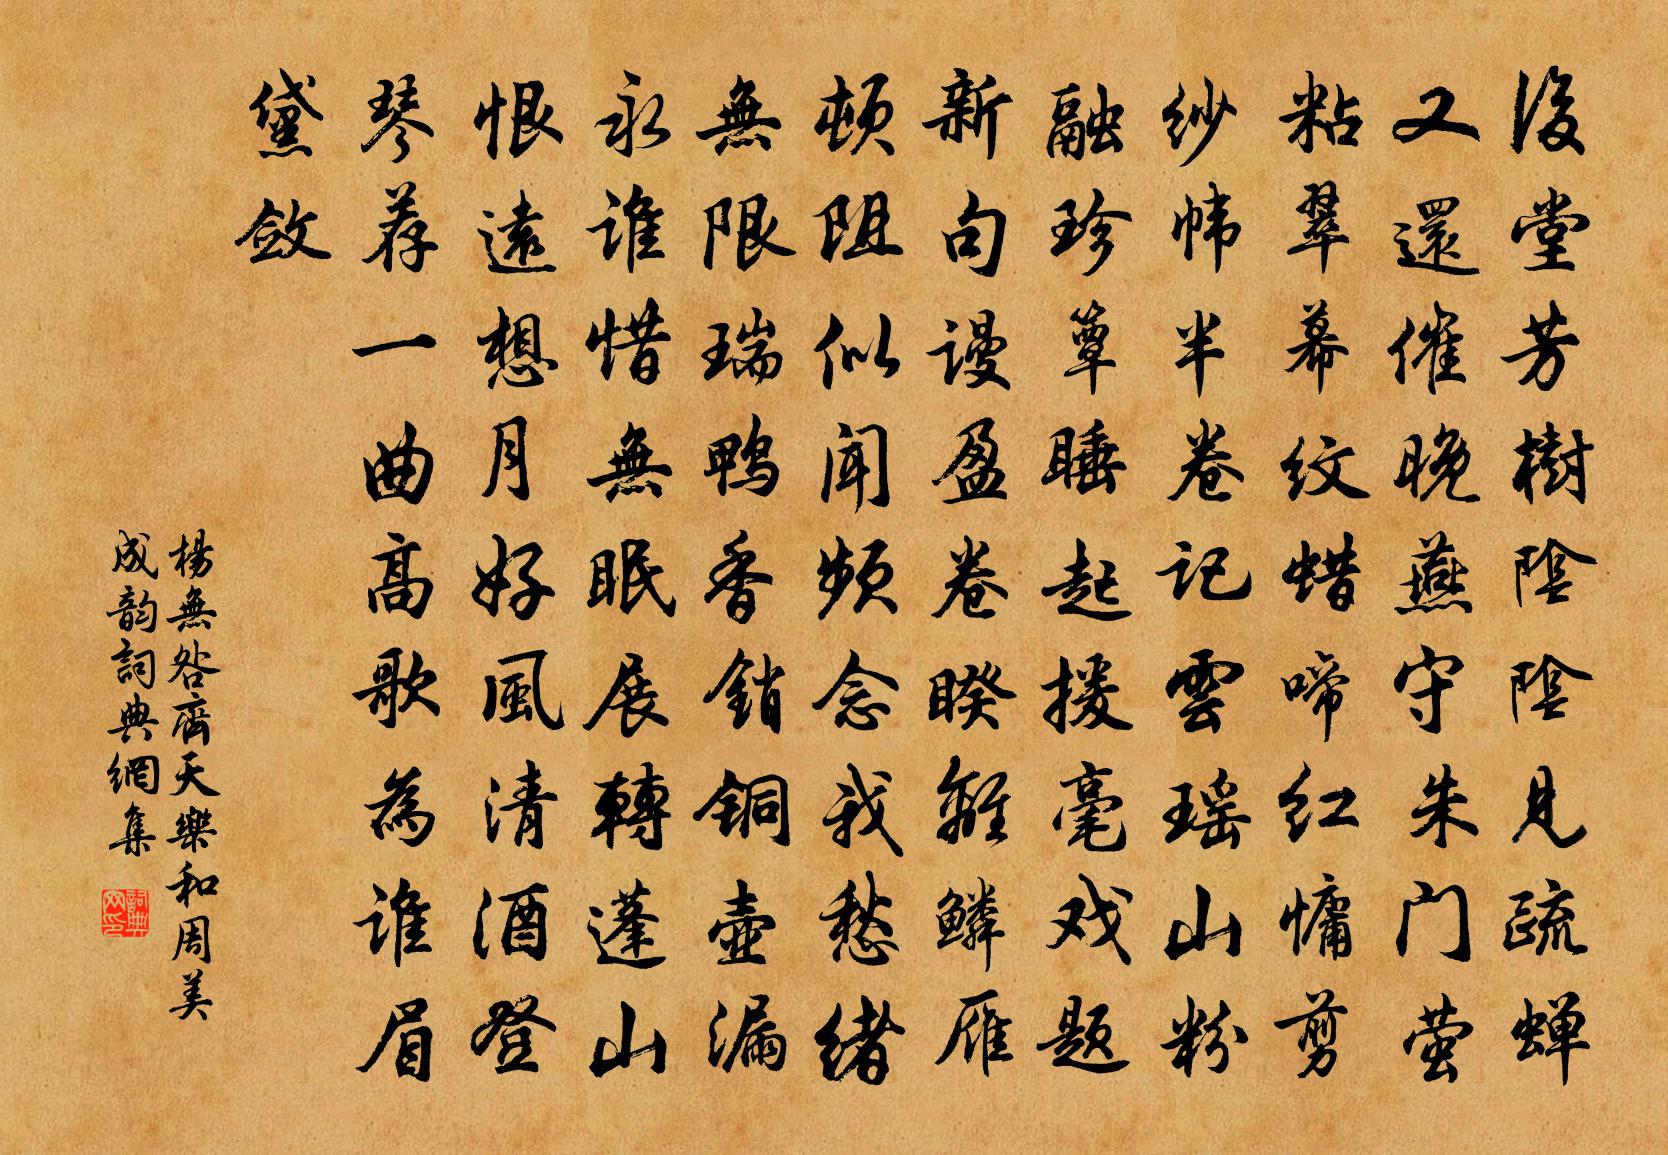 後堂芳樹陰陰見疏蝉
又還催晚燕守朱門萤
粘翠幕纹蜡啼红慵剪
纱帏半卷记雲瑶山粉
融珍簟睡起援毫戏题
新句谩盈卷睽離鳞雁
顿阻似闻频念我愁绪
無限瑞鸭香銷铜壶漏
永谁惜無眠展轉蓬山
恨遠想月好風清酒登
琴荐一曲高歌為谁眉
黛敛
楊無咎齊天樂和周美
成韵詞典網集
詞典網印